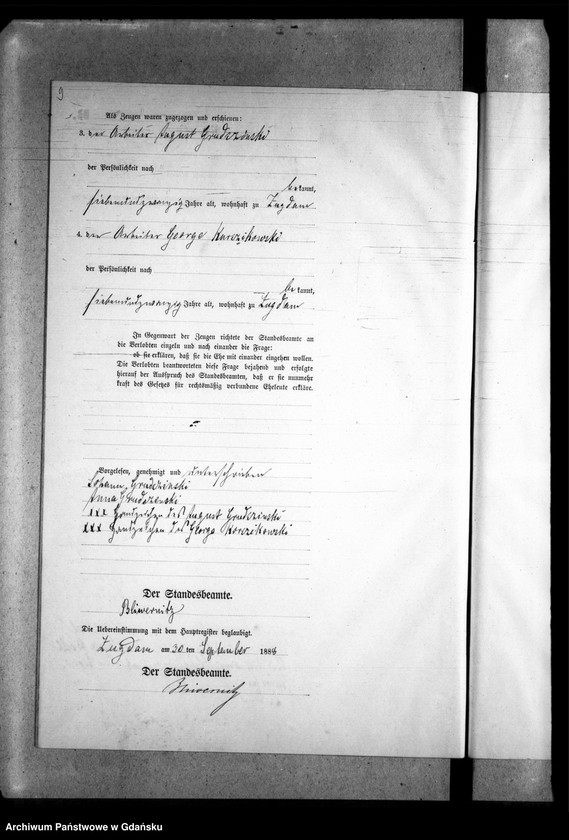 9
Als Zeugen waren zugezogen und erschienen:
3. der Arbeiter August Grudzinski
der Persönlichkeit nach
be kannt,
siebenundzwanzig Jahre alt, wohnhaft zu Zugdam
4. der Arbeiter George Karczikowski
der Persönlichkeit nach
be kannt,
siebenundzwanzig Jahre alt, wohnhaft zu Zugdam
In Gegenwart der Zeugen richtete der Standesbeamte an
die Verlobten einzeln und nach einander die Frage:
ob sie erklären, daß sie die Ehe mit einander eingehen wollen.
Die Verlobten beantworteten diese Frage bejahend und erfolgte
hierauf der Ausspruch des Standesbeamten, daß er sie nunmehr
kraft des Gesetzes für rechtmäßig verbundene Eheleute erkläre.
Vorgelesen, genehmigt und unterschrieben
Johann Grudzinski
Anna Grudzenski
xxx Handzeichen des August Grudczinski
xxx Handzeichen des George Korczikowski
Der Standesbeamte.
Bliwernitz
Die Uebereinstimmung mit dem Hauptregister beglaubigt.
Zugdam am 20 ten September 188
Der Standesbeamte.
Archiwum Państwowe w Gdańsku